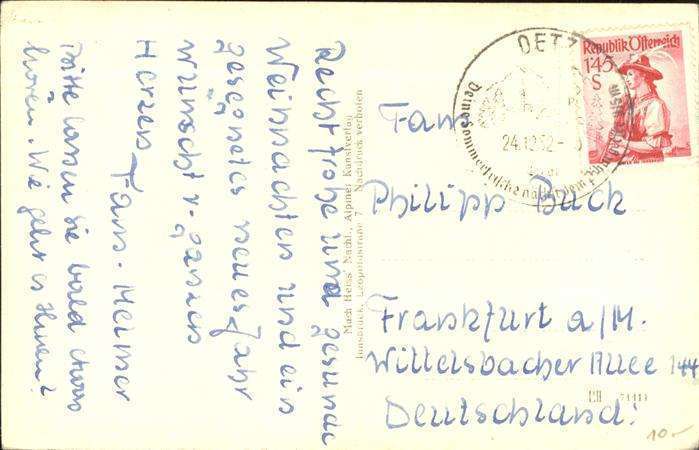 Recht frohe und gesunde
Weihnachten und ein
gesegnetes neues Jahr
wünscht v. ganzem
Herzen Fam.
Bitte lassen sie bald etwas
hören. Wie geht es Ihnen?
Much Heiss' Nachf., Alpiner Kunstverlag
Innsbruck, Leopoldstraße 7 Nachdruck verboten
OETZ
24.12.52
Deine Sommerfrische
Republik Österreich
1'45
S
Fam.
Philipp Buch
Frankfurt a/M.
Wittelsbacher Allee 144
Deutschland!
10.-